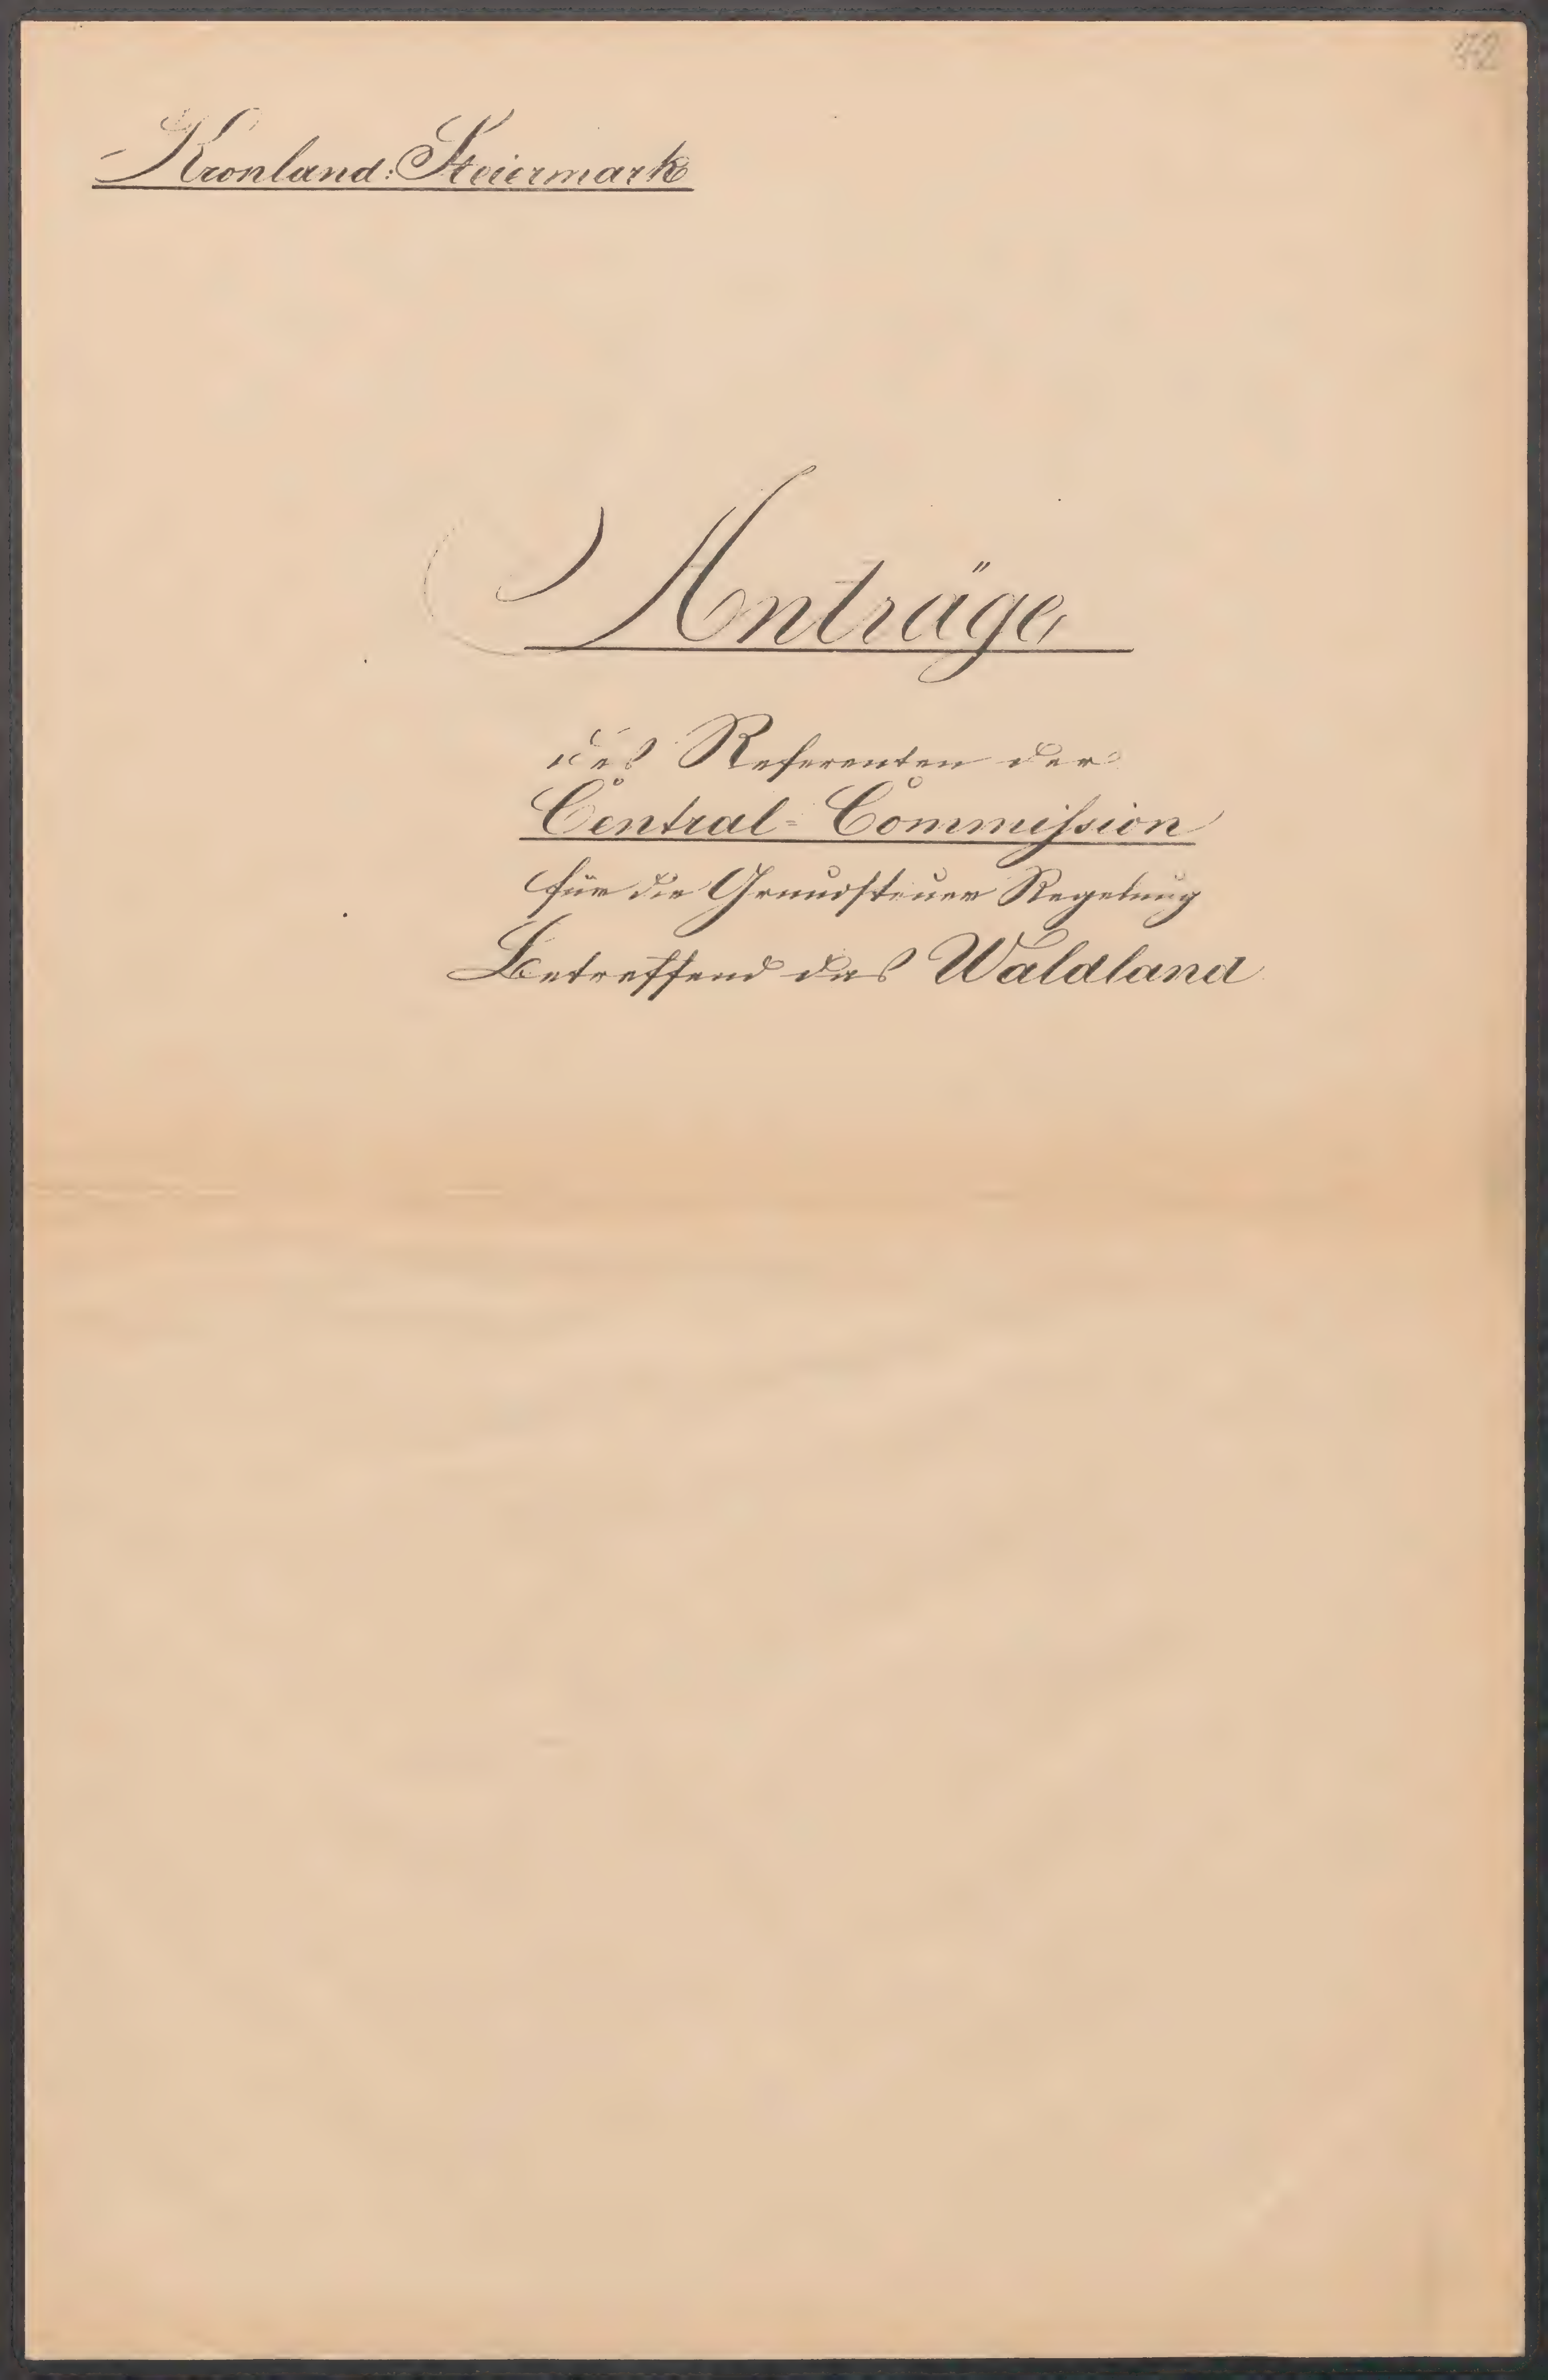 42
Kronland: Steiermark
Anträge
des Referenten der
Central-Commission
für die Grundsteuer Regelung
Betreffend das Waldland